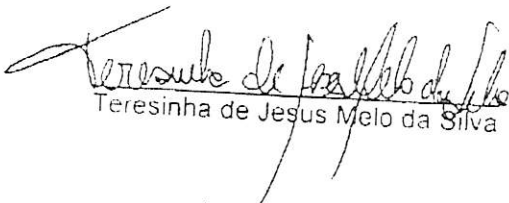 Teresinha de Jesus Melo da Silva
Teresinha de Jesus Melo da Silva